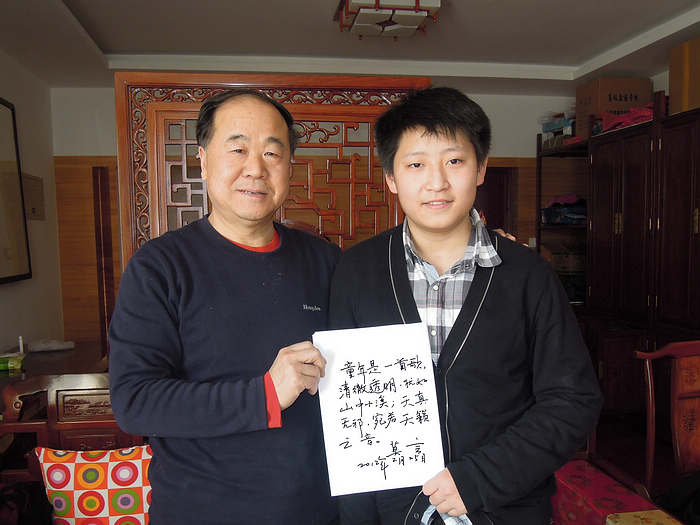 童年是一首歌，
清澈透明，犹如
山中小溪；天真
无邪，宛若天籁
之音。
莫言
2012年2月25日